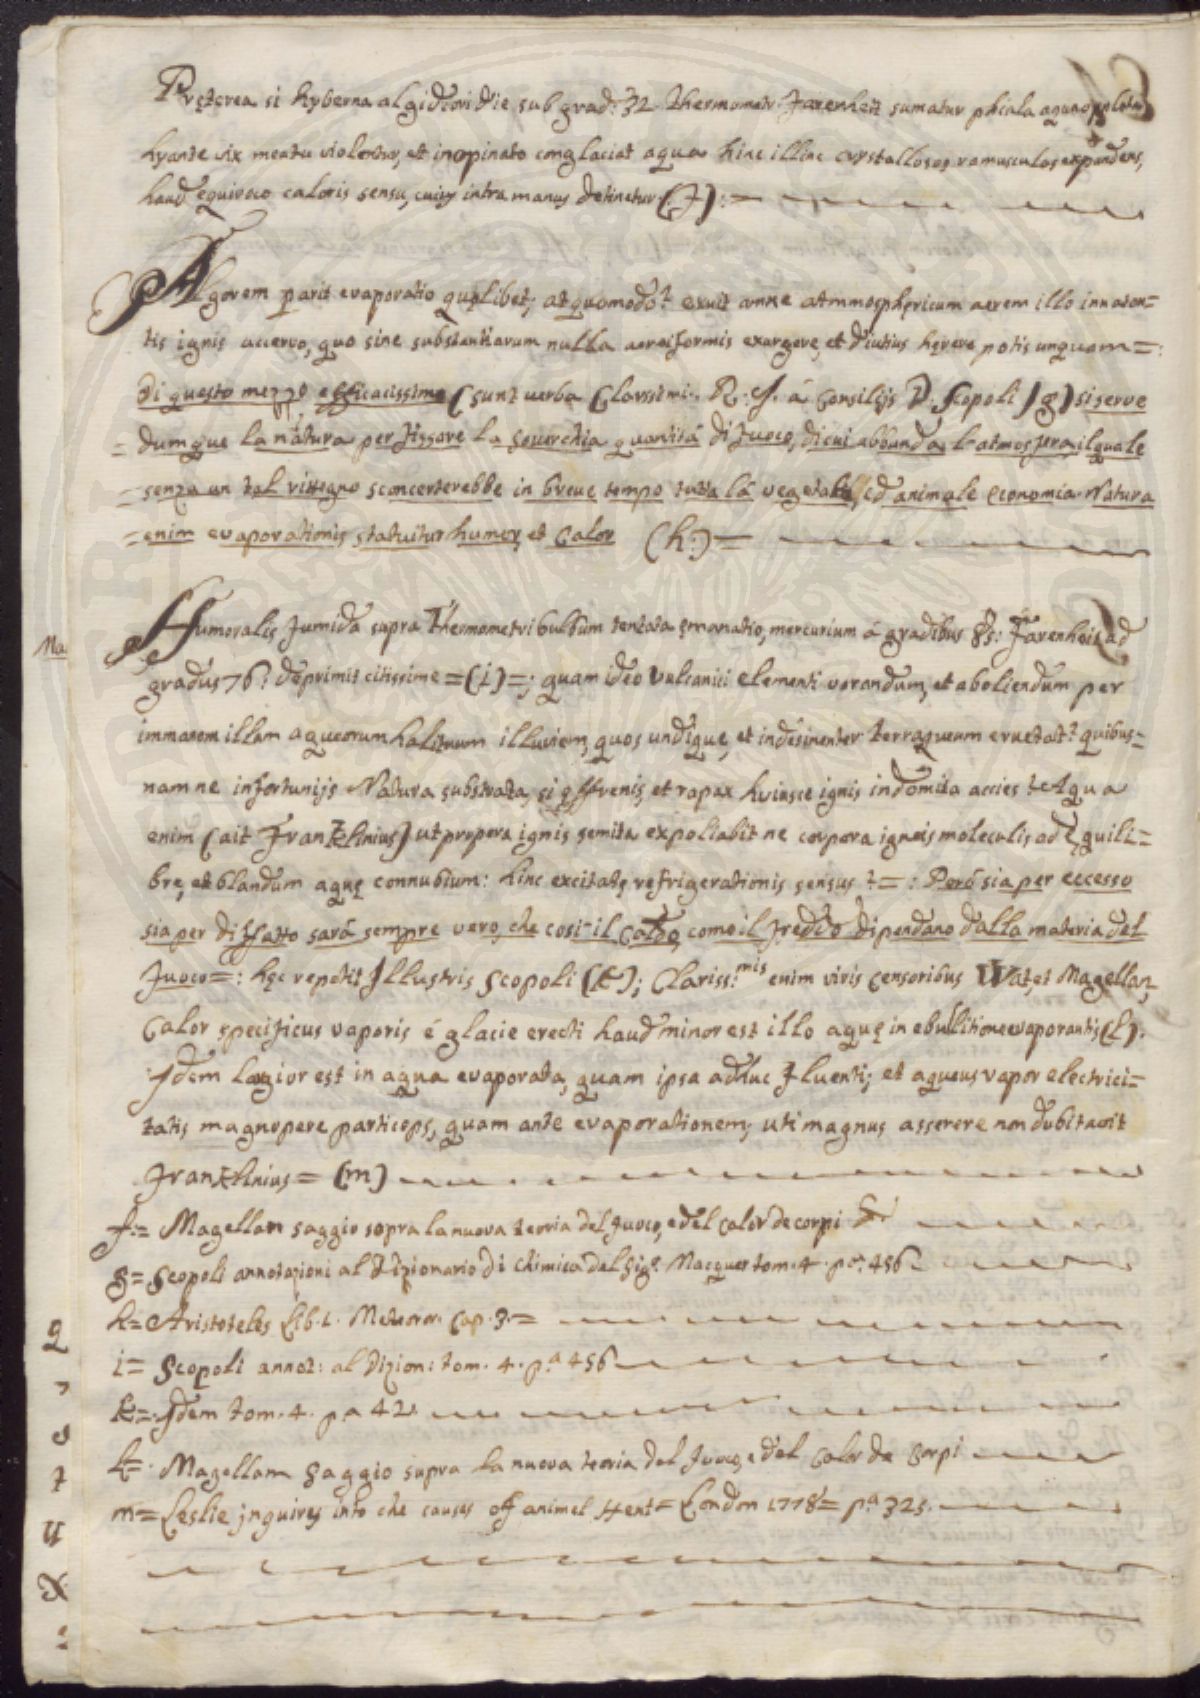 Pręterea si hyberna algidiori die sub grad: 32 thermometr: Farenheit sumatur phiala aqua
hyante vix meatu violentur, et inopinato conglaciat aqua hinc illinc crystallosos ramusculos expandens,
haud equivoco caloris sensu, cuius intra manus detinetur (f): =
Algorem parit evaporatio quęlibet; at quomodo? exuit omne atmmosphęricum aerem illo innaten=
tis ignis acervo, quo sine substantiarum nulla aereiformis exurgere, et diutius hęrere potis unquam =:
di questo mezzo efficacissimo (sunt verba Clarissimi R. J. á Consilijs D. Scopoli (g) si serve
= dumque la nátura per fissare la soverchia quantitá di fuoco, di cui abbunda l'atmosfera, il quale
= senza un tal rittegno sconcerterebbe in breve tempo tutta lá vegetale, ed animale economia. Natura
= enim evaporationis statuitur humor, et Calor (h:) =
Humoralis fumida supra Thermometri bulbum tentata emanatio, mercurium á gradibus 85: Farenheit ad
Na
gradus 76: deprimit citissime = (i) =; quam ideo vulcanici elementi vorandum, et aboliendum per
immanem illam aqueorum halituum illuviem, quos undique, et indesinenter terraqueum eructat? quibus=
namne infortunijs Natura substrata, si effrenis, et rapax huiusce ignis indomita accies? Aqua
enim (ait Franklinius) ut propera ignis semita expoliabit ne corpora igneis moleculis ad ęquili=
bre, et blandum aquę connubium: hinc excitatę refrigerationis sensus? =: Peró sia per eccesso
sia per diffatto sará sempre vero, che cosi il caldo, como il freddo dipendano dalla materia del
fuoco =: hęc repetit Illustris Scopoli (k); Clariss:mis enim viris censoribus Wat, et Magellan,
Calor specificus vaporis é glacie erecti haud minor est illo aquę in ebullitione evaporantis (l).
Idem largior est in aqua evaporata, quam ipsa adhuc fluenti; et aqueus vapor electrici=
tatis magnopere particeps, quam ante evaporationem; uti magnus asserere non dubitavit
Franklinius = (m)
f:= Magellan saggio sopra la nuova teoria del fuoco, e del calor de corpi
g= Scopoli annotazioni al Dizionario di chimica del Sig.r Macquer tom. 4. p.a 456
h= Aristoteles Lib. 1. Meteoror. Cap. 3. =
i= Scopoli annot: al Dizion: tom. 4. p.a 456
k=. Idem tom. 4. p.a 42.
l=. Magellan Saggio supra la nuova teoria del fuoco, e del Calor de Corpi
m= Leslie jnguires into che causes off animel Heat = London 1778 = p.a 325.